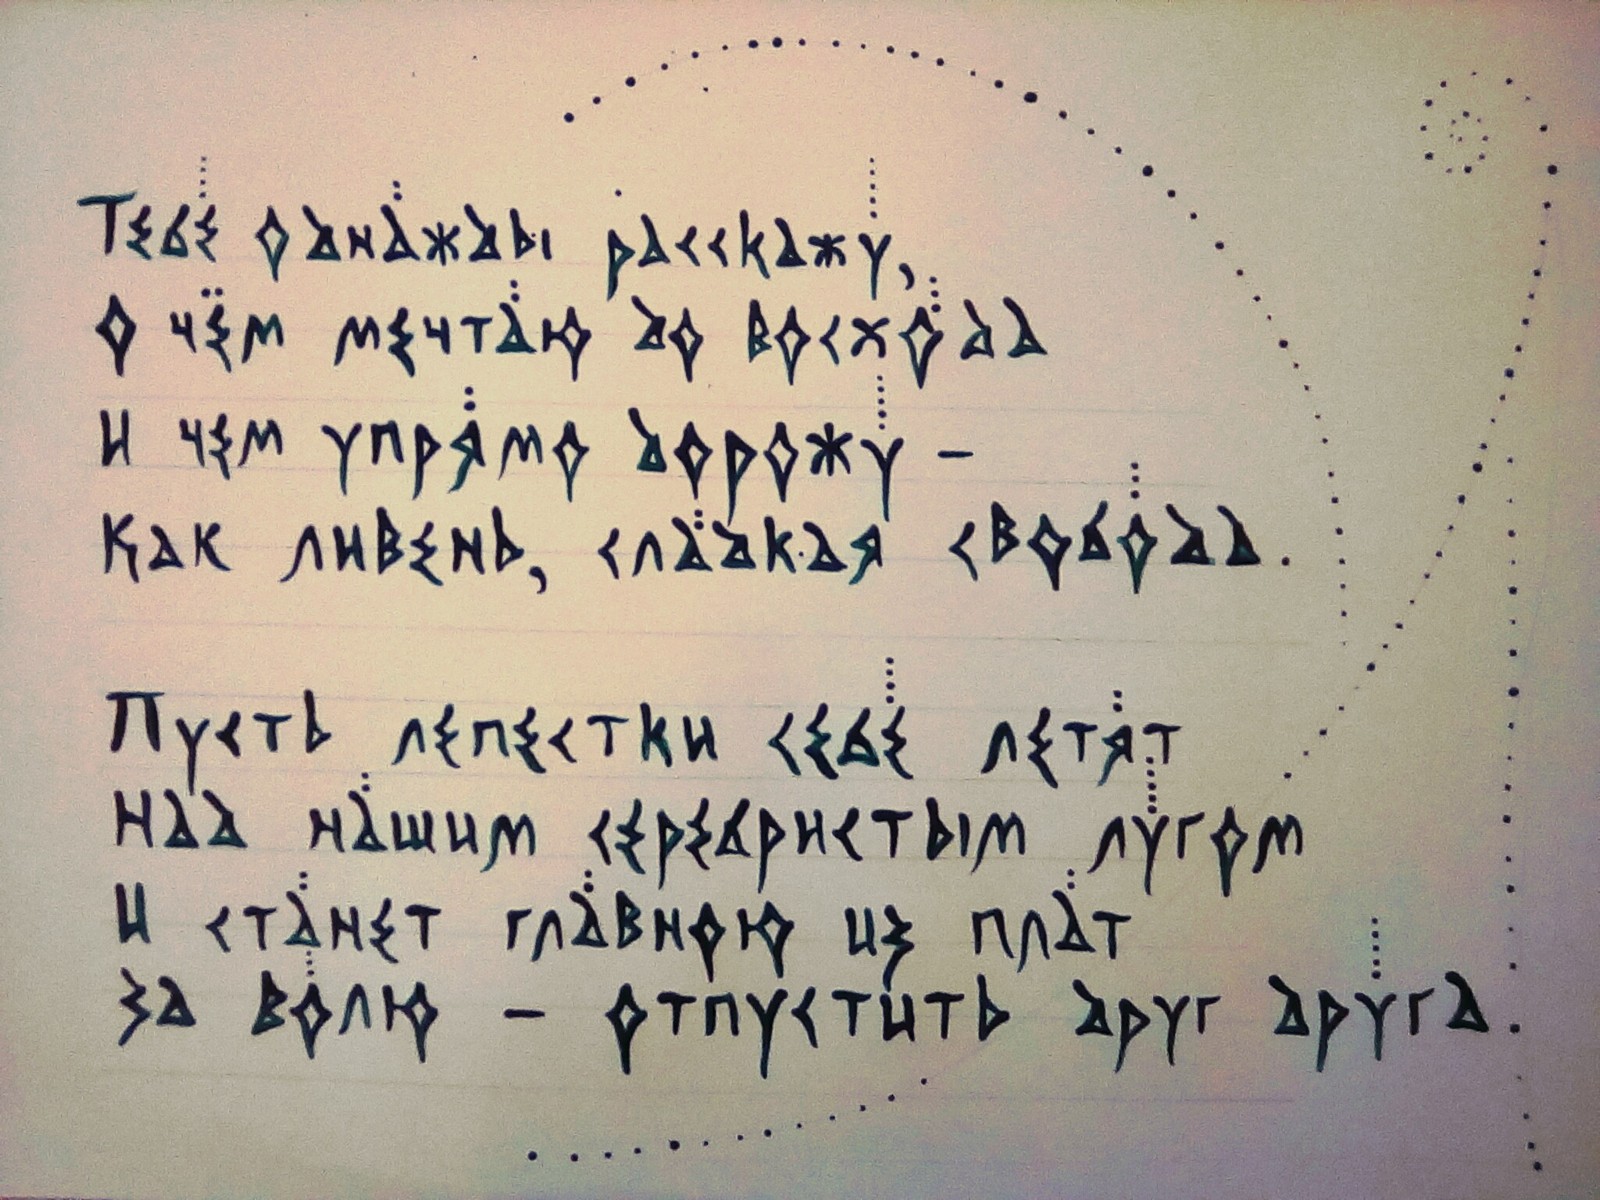 Тебе однажды расскажу,
О чём мечтаю до восхода
И чем упрямо дорожу –
Как ливень, сладкая свобода.
Пусть лепестки себе летят
Над нашим серебристым лугом
И станет главною из плат
За волю – отпустить друг друга.